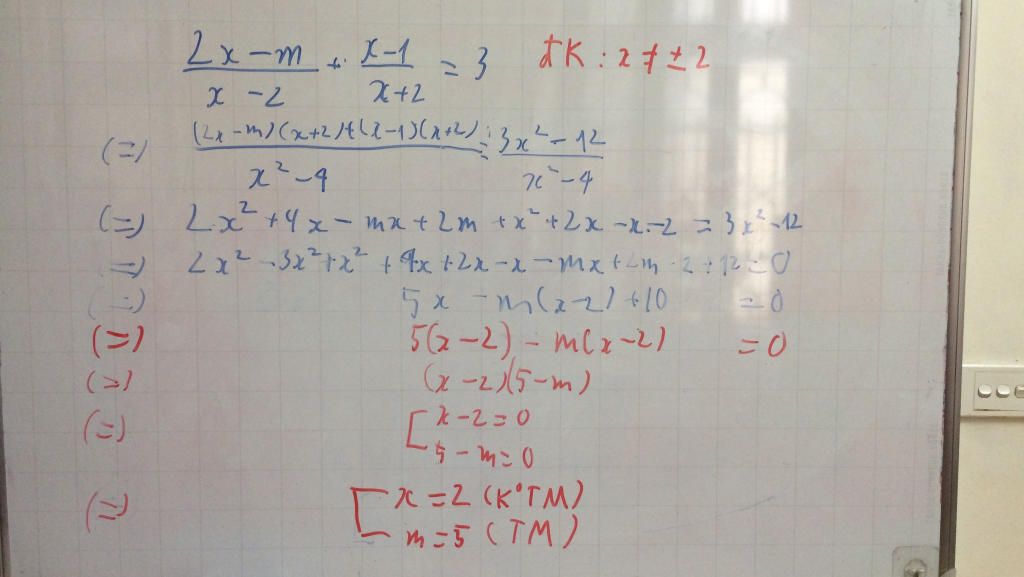 (2x-m)/(x-2) + (x-1)/(x+2) = 3 ĐK: x ≠ ±2
(=) ((2x-m)(x+2)+(x-1)(x+2))/(x²-4) = (3x²-12)/(x²-4)
(=) 2x²+4x-mx+2m+x²+2x-x-2 = 3x²-12
(=) 2x²-3x²+x²+4x+2x-x-mx+2m-2+12=0
(=) 5x -m(x-2)+10 =0
(=) 5(x-2)-m(x-2) =0
(=) (x-2)(5-m)
(=) [ x-2=0
5-m=0
(=) [ x=2 (K°TM)
m=5 (TM)